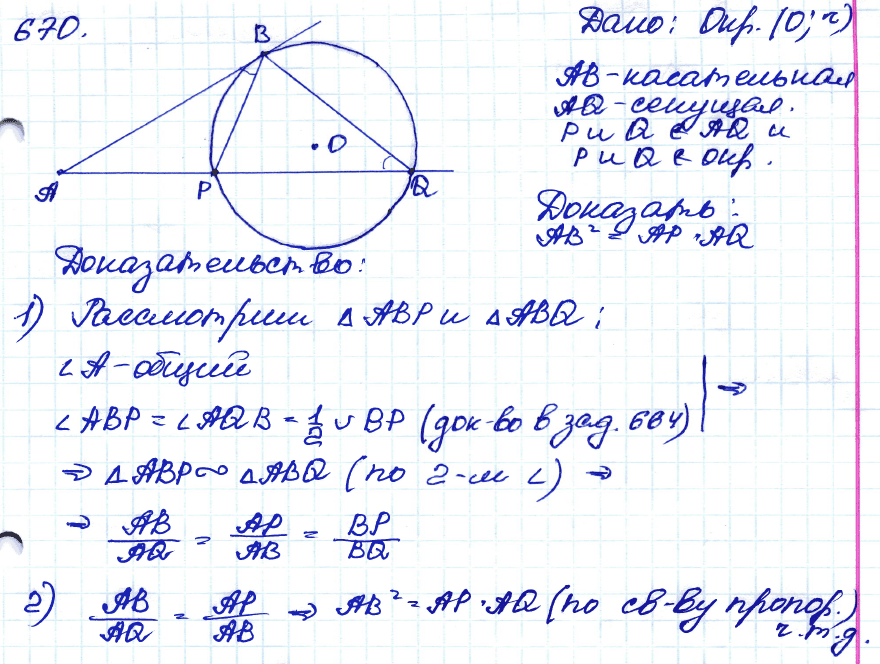 670.
Дано: Окр. (O; r)
AB - касательная
AQ - секущая.
P и Q ∈ AQ и
P и Q ∈ окр.
Доказать:
AB² = AP · AQ
B
O
A
P
Q
Доказательство:
1) Рассмотрим △ABP и △ABQ;
∠A - общий
∠ABP = ∠AQB = 1/2 ∪ BP (док-во в зад. 664) ⇒
⇒ △ABP ∾ △ABQ (по 2-м ∠) ⇒
⇒ AB/AQ = AP/AB = BP/BQ
2) AB/AQ = AP/AB ⇒ AB² = AP · AQ (по св-ву пропор.)
ч.т.д.